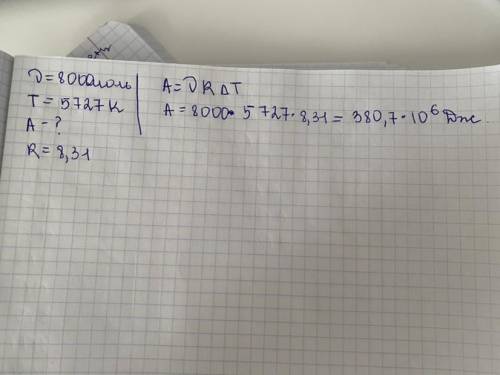 ν = 8000моль
T = 5727 K
A - ?
R = 8,31
A = ν R Δ T
A = 8000 • 5727 · 8,31 = 380,7 · 10⁶ Дж.